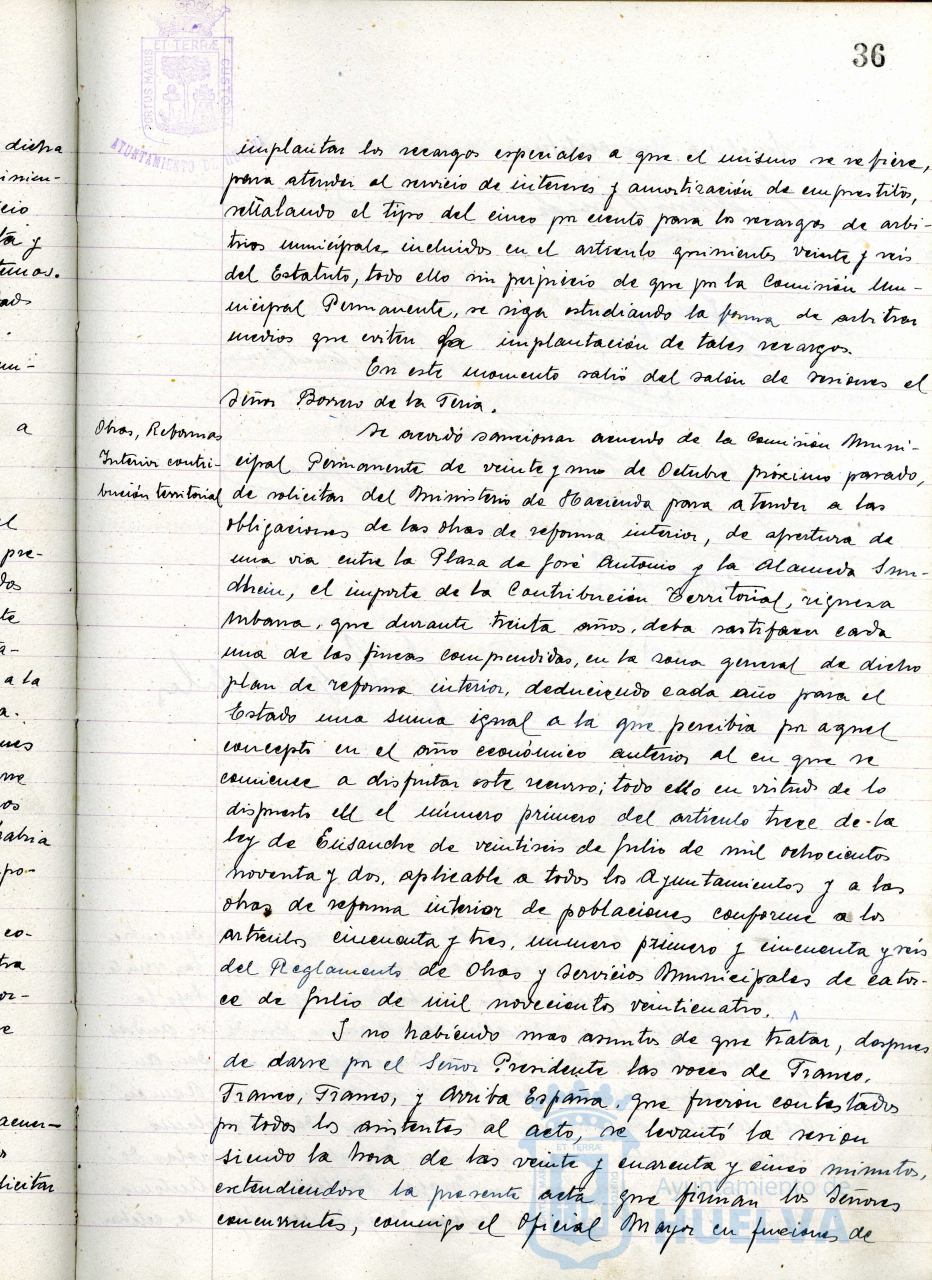 36
PORTUS MARIS ET TERRÆ CUSTODIA
AYUNTAMIENTO DE
dicha
cio
ta y
a
el
pre-
dos
te
a la
habria
po-
co-
tra
or-
e
acuer-
licitar
implantar los recargos especiales a que el mismo se refiere,
para atender al servicio de intereses y amortización de emprestitos,
señalando el tipo del cinco por ciento para los recargos de arbi-
trios municipales incluidos en el articulo quinientos veinte y seis
del Estatuto, todo ello sin perjuicio de que por la Comisión Mu-
nicipal Permanente, se siga estudiando la forma de arbitrar
medios que eviten la implantación de tales recargos.
En este momento salió del salón de sesiones el
Señor Borrero de la Feria.
Obras, Reformas
Interior contri-
bución territorial
Se acordó sancionar acuerdo de la Comisión Muni-
cipal Permanente de veinte y uno de Octubre próximo pasado,
de solicitar del Ministerio de Hacienda para atender a las
obligaciones de las obras de reforma interior, de apertura de
una via entre la Plaza de José Antonio y la Alameda Sun-
dhein, el importe de la Contribución Territorial, riqueza
urbana, que durante treinta años, deba sastifacer cada
una de las fincas comprendidas, en la zona general de dicho
plan de reforma interior, deduciendo cada año para el
Estado una suma igual a la que percibia por aquel
concepto en el año económico anterior al en que se
comience a disfrutar este recurso; todo ello en virtud de lo
dispuesto en el número primero del articulo trece de la
ley de Ensanche de veintiseis de Julio de mil ochocientos
noventa y dos, aplicable a todos los Ayuntamientos y a las
obras de reforma interior de poblaciones conforme a los
articulos cincuenta y tres, número primero y cincuenta y seis
del Reglamento de Obras y Servicios Municipales de cator-
ce de Julio de mil novecientos veinticuatro.
Y no habiendo mas asuntos de que tratar, despues
de darse por el Señor Presidente las voces de Franco,
Franco, Franco, y Arriba España, que fueron contestados
por todos los asistentes al acto, se levantó la sesion
siendo la hora de las veinte y cuarenta y cinco minutos,
extendiendose la presente acta que firman los Señores
concurrentes, conmigo el Oficial Mayor en funciones de
Ayuntamiento de
HUELVA